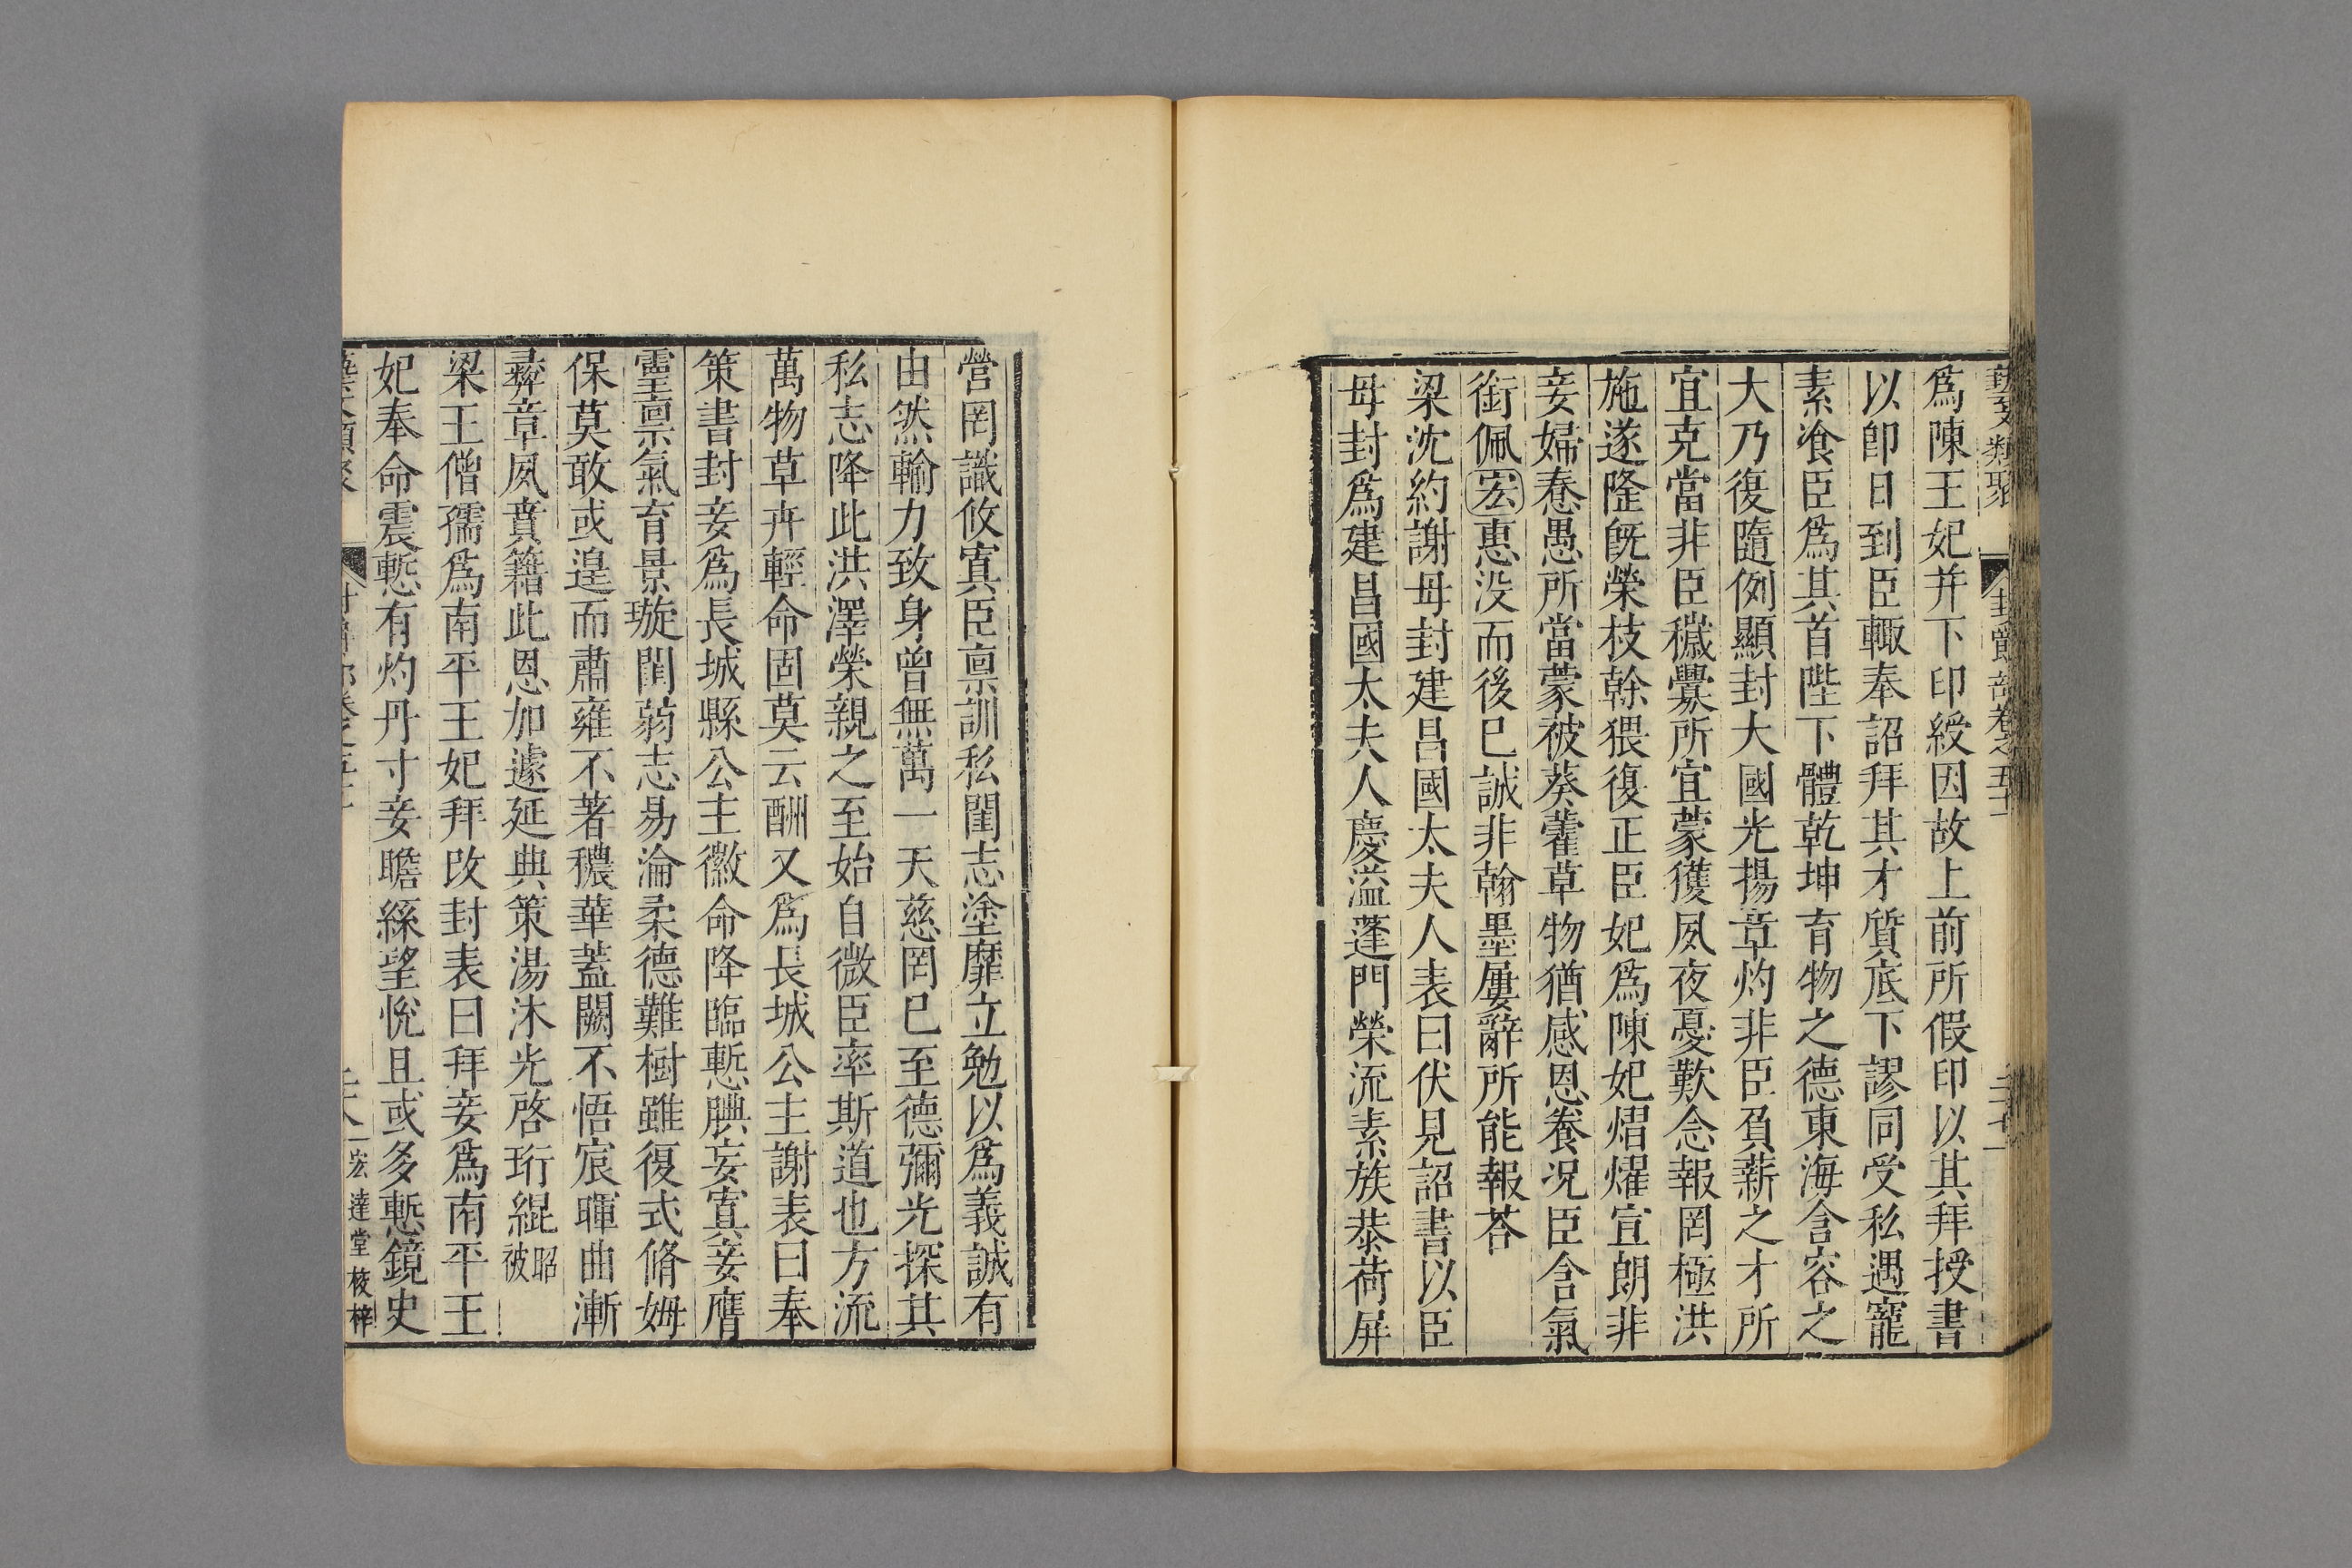 藝文類聚 封爵部卷之五十一
爲陳王妃并下印綬因故上前所假印以其拜授書
以卽日到臣輙奉詔拜其才質底下謬同受私遇寵
素飡臣爲其首陛下體乾坤育物之德東海含容之
大乃復隨例顯封大國光揚章灼非臣負薪之才所
宜克當非臣穢釁所宜蒙獲夙夜憂歎念報罔極洪
施遂隆旣榮枝幹猥復正臣妃爲陳妃熠燿宣朗非
妾婦惷愚所當蒙被葵藿草物猶感恩養况臣含氣
銜佩宏惠没而後已誠非翰墨屢辭所能報荅
梁沈約謝母封建昌國太夫人表曰伏見詔書以臣
母封爲建昌國太夫人慶溢蓬門榮流素族恭荷屏
營罔識攸寘臣禀訓私閨志塗靡立勉以爲義誠有
由然輸力致身曾無萬一天慈罔已至德彌光探其
私志降此洪澤榮親之至始自微臣率斯道也方流
萬物草卉輕命固莫云酬又爲長城公主謝表曰奉
策書封妾爲長城縣公主徽命降臨慙腆妄寘妾膺
靈禀氣育景璇閨蒻志易淪柔德難樹雖復式脩姆
保莫敢或遑而肅雍不著穠華蓋闕不悟宸暉曲漸
彛章夙賁籍此恩加遽延典策湯沐光啓珩緄昭被
梁王僧孺爲南平王妃拜改封表曰拜妾爲南平王
妃奉命震慙有灼丹寸妾瞻綠望恱且或多慙鏡史
宏達堂校梓